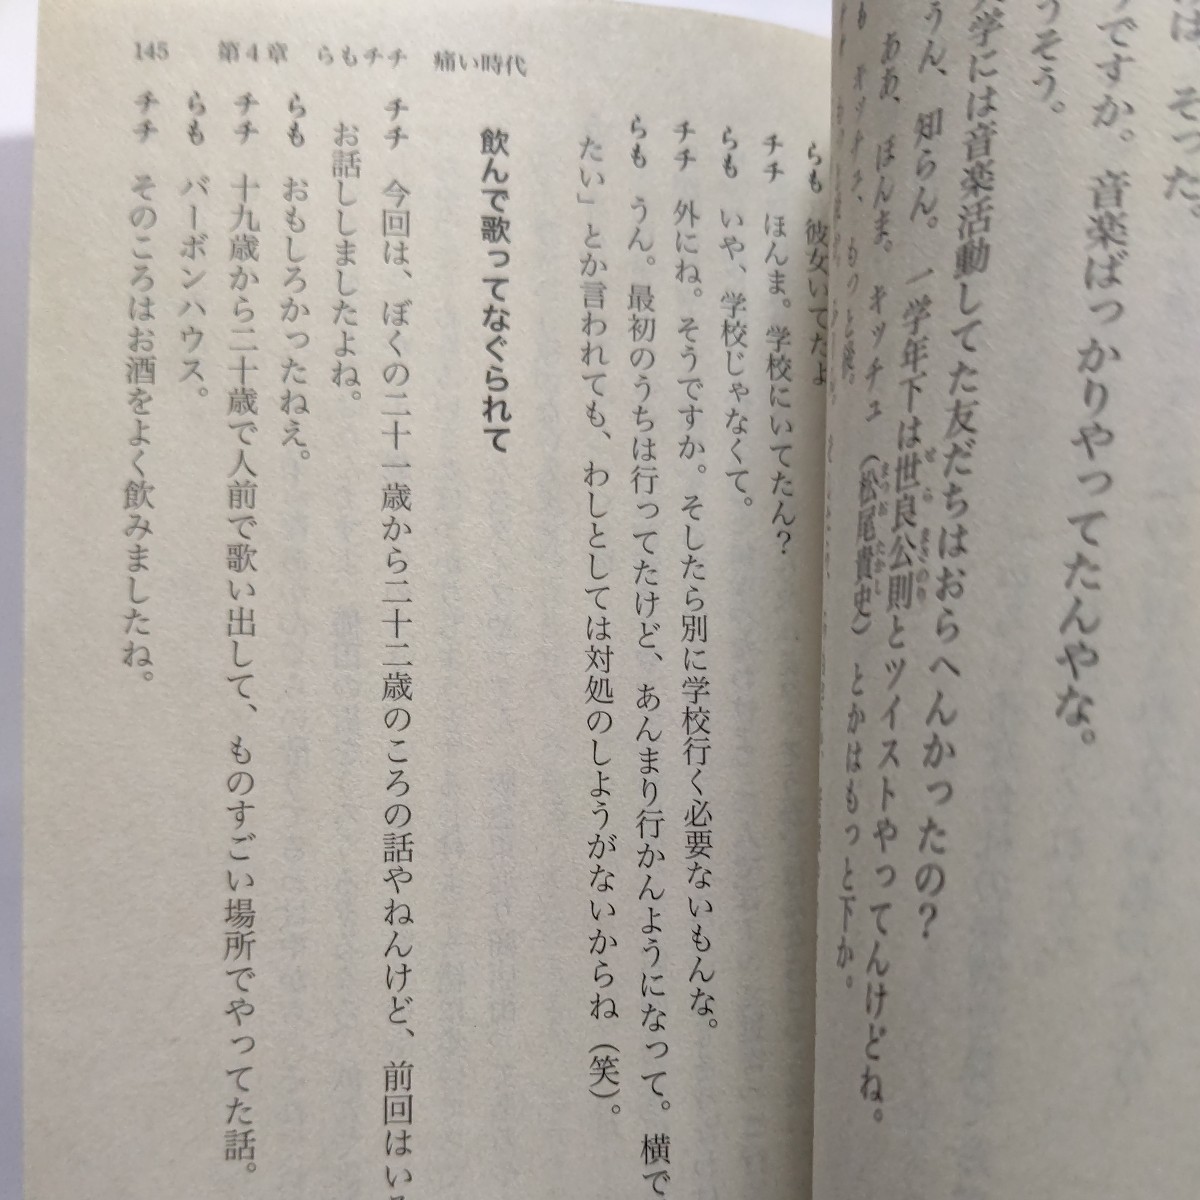 は、そった。
ですか。音楽ばっかりやってたんやな。
うそう。
大学には音楽活動してた友だちはおらへんかったの?
うん、知らん。一学年下は世良公則とツイストやってんけどね。
ああ、ほんま。キッチュ(松尾貴史)とかはもっと下か。
145 第4章 らもチチ 痛い時代
らも 彼女いてたよ
チチ ほんま。学校にいてたん?
らも いや、学校じゃなくて。
チチ 外にね。そうですか。そしたら別に学校行く必要ないもんな。
らも うん。最初のうちは行ってたけど、あんまり行かんようになって。横で
たい」とか言われても、わしとしては対処のしようがないからね(笑)。
飲んで歌ってなぐられて
チチ 今回は、ぼくの二十一歳から二十二歳のころの話やねんけど、前回はい
お話ししましたよね。
らも おもしろかったねえ。
チチ 十九歳から二十歳で人前で歌い出して、ものすごい場所でやってた話。
らも バーボンハウス。
チチ そのころはお酒をよく飲みましたね。